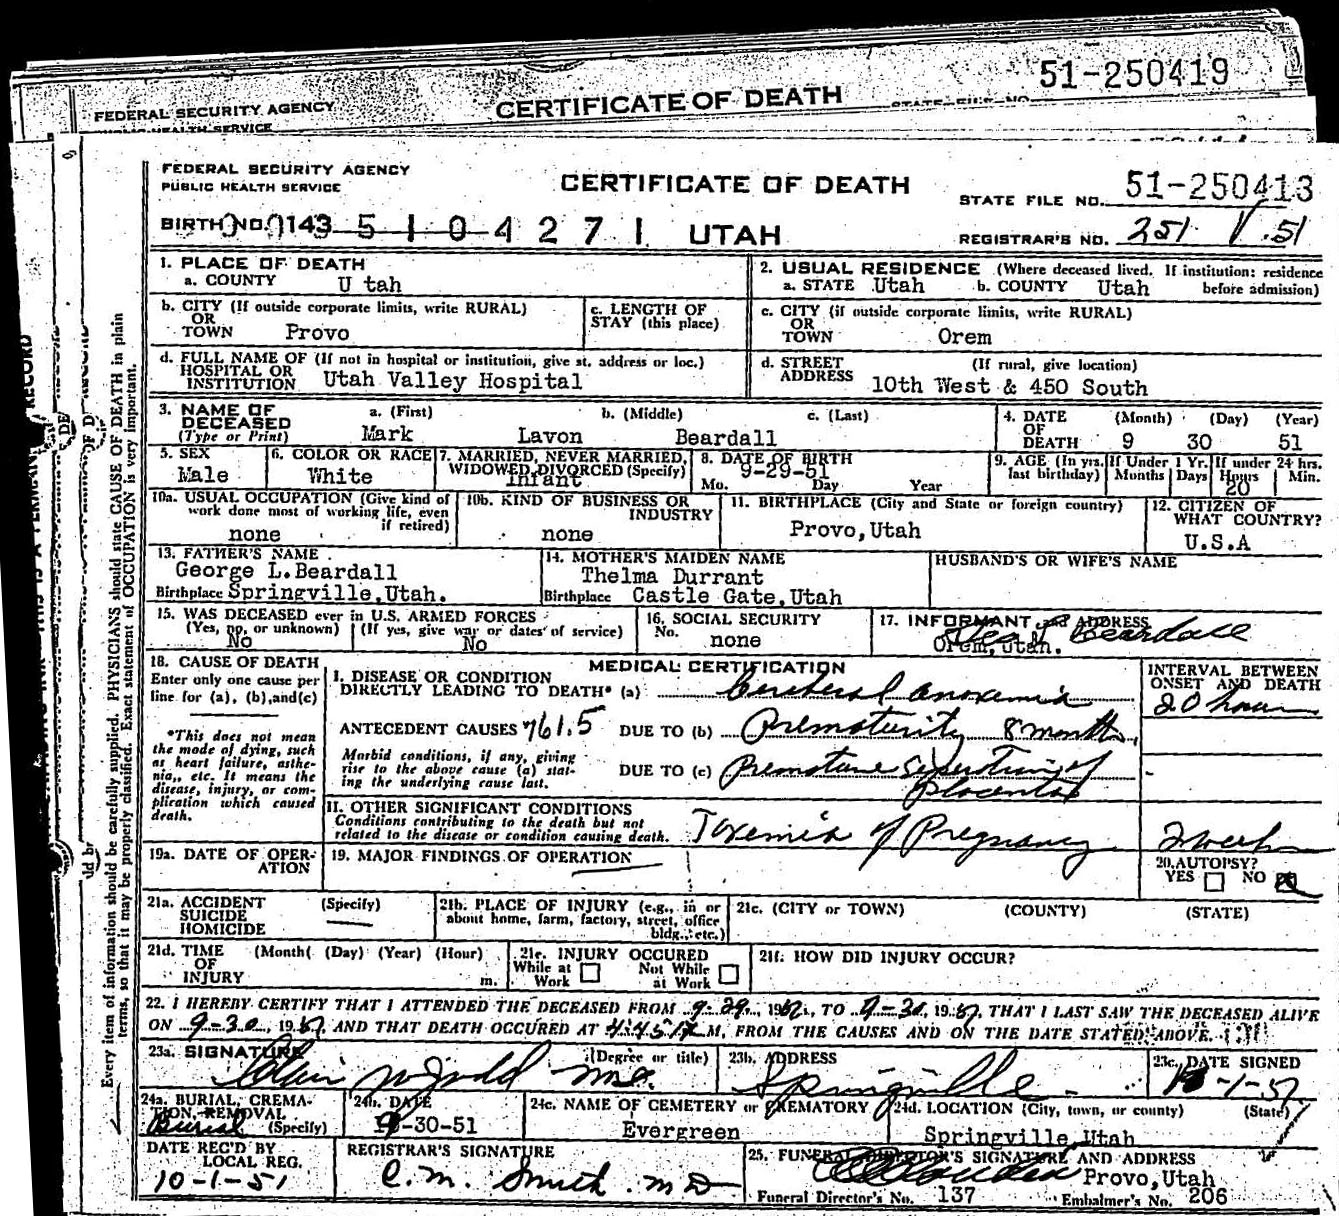 51-250419
FEDERAL SECURITY AGENCY CERTIFICATE OF DEATH STATE FILE NO.
HEALTH SERVICE
FEDERAL SECURITY AGENCY
PUBLIC HEALTH SERVICE
CERTIFICATE OF DEATH
STATE FILE NO. 51-250413
BIRTH NO. 143 5 1 0 4 2 7 1 UTAH
REGISTRAR'S NO. 251 51
1. PLACE OF DEATH
a. COUNTY U tah
2. USUAL RESIDENCE (Where deceased lived. If institution: residence
a. STATE Utah b. COUNTY Utah before admission)
b. CITY (If outside corporate limits, write RURAL)
OR
TOWN Provo
c. LENGTH OF
STAY (this place)
c. CITY (if outside corporate limits, write RURAL)
OR
TOWN Orem
d. FULL NAME OF (If not in hospital or institution, give st. address or loc.)
HOSPITAL OR
INSTITUTION Utah Valley Hospital
d. STREET (If rural, give location)
ADDRESS 10th West & 450 South
3. NAME OF a. (First) b. (Middle) c. (Last)
DECEASED
(Type or Print) Mark Lavon Beardall
4. DATE (Month) (Day) (Year)
OF
DEATH 9 30 51
5. SEX
Male
6. COLOR OR RACE
White
7. MARRIED, NEVER MARRIED,
WIDOWED, DIVORCED (Specify)
Infant
8. DATE OF BIRTH
9-29-51
Mo. Day Year
9. AGE (In yrs. If Under 1 Yr. If under 24 hrs.
last birthday) Months Days Hours Min.
20
10a. USUAL OCCUPATION (Give kind of
work done most of working life, even
if retired)
none
10b. KIND OF BUSINESS OR
INDUSTRY
none
11. BIRTHPLACE (City and State or foreign country)
Provo,Utah
12. CITIZEN OF
WHAT COUNTRY?
U.S.A
13. FATHER'S NAME
George L.Beardall
Birthplace Springville,Utah.
14. MOTHER'S MAIDEN NAME
Thelma Durrant
Birthplace Castle Gate,Utah
HUSBAND'S OR WIFE'S NAME
15. WAS DECEASED ever in U.S. ARMED FORCES
(Yes, no, or unknown) (If yes, give war or dates of service)
No No
16. SOCIAL SECURITY
No. none
17. INFORMANT ADDRESS
Geo L Beardall
Orem,Utah.
18. CAUSE OF DEATH
Enter only one cause per
line for (a), (b),and(c)
*This does not mean
the mode of dying, such
as heart failure, asthe-
nia,, etc. It means the
disease, injury, or com-
plication which caused
death.
MEDICAL CERTIFICATION
I. DISEASE OR CONDITION
DIRECTLY LEADING TO DEATH* (a) Cerebral anoxemia
ANTECEDENT CAUSES 761.5 DUE TO (b) Prematurity 8 months
Morbid conditions, if any, giving
rise to the above cause (a) stat-
ing the underlying cause last.
DUE TO (c) Premature Separation of
placenta
INTERVAL BETWEEN
ONSET AND DEATH
20 hours
II. OTHER SIGNIFICANT CONDITIONS
Conditions contributing to the death but not
related to the disease or condition causing death.
Toxemia of Pregnancy 2 weeks
19a. DATE OF OPER-
ATION
19. MAJOR FINDINGS OF OPERATION
20. AUTOPSY?
YES NO
21a. ACCIDENT (Specify)
SUICIDE
HOMICIDE
21b. PLACE OF INJURY (e.g., in or
about home, farm, factory, street, office
bldg., etc.)
21c. (CITY or TOWN) (COUNTY) (STATE)
21d. TIME (Month) (Day) (Year) (Hour)
OF
INJURY m.
21e. INJURY OCCURED
While at Work Not While at Work
21f. HOW DID INJURY OCCUR?
22. I HEREBY CERTIFY THAT I ATTENDED THE DECEASED FROM 9-29, 1951, TO 9-30, 1951, THAT I LAST SAW THE DECEASED ALIVE
ON 9-30, 1951, AND THAT DEATH OCCURED AT 4:45 M, FROM THE CAUSES AND ON THE DATE STATED ABOVE.
23a. SIGNATURE (Degree or title)
M.D.
23b. ADDRESS
Springville
23c. DATE SIGNED
10-1-51
24a. BURIAL, CREMA-
TION, REMOVAL
Burial (Specify)
24b. DATE
9-30-51
24c. NAME OF CEMETERY or CREMATORY
Evergreen
24d. LOCATION (City, town, or county) (State)
Springville,Utah
DATE REC'D BY
LOCAL REG.
10-1-51
REGISTRAR'S SIGNATURE
C.M. Smith. M D
25. FUNERAL DIRECTOR'S SIGNATURE AND ADDRESS
Provo,Utah
Funeral Director's No. 137 Embalmer's No. 206
Every item of information should be carefully supplied. PHYSICIANS should state CAUSE OF DEATH in plain
terms, so that it may be properly classified. Exact statement of OCCUPATION is very important.